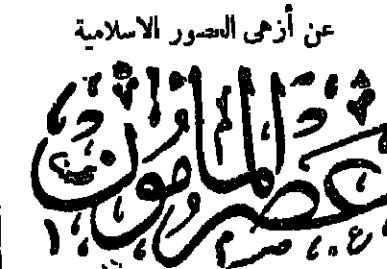 عن أزهى العصور الاسلامية
عصر المأمون